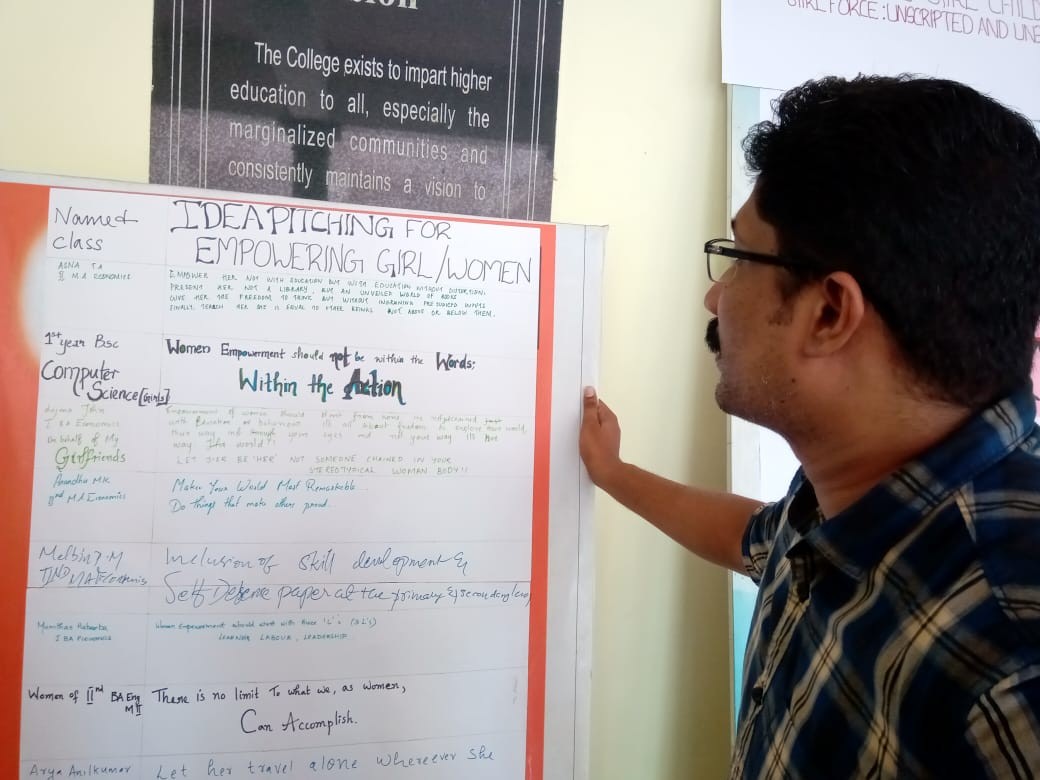 The College exists to impart higher
education to all, especially the
marginalized communities and
consistently maintains a vision to
GIRL CHILD
GIRL FORCE: UNSCRIPTED AND
Name &
class
IDEA PITCHING FOR
EMPOWERING GIRL/WOMEN
II MA ECONOMICS
EMPOWER HER NOT WITH EDUCATION BUT WITH EDUCATION WITHOUT DISTORTION.
PRESENT HER NOT A LIBRARY, BUT AN UNVEILED WORLD OF BOOKS
GIVE HER THE FREEDOM TO THINK BUT WITHOUT INGRAINING PREJUDICED
FINALLY, TEACH HER SHE IS EQUAL TO OTHER BEINGS NOT ABOVE OR BELOW THEM.
1st year Bsc
Computer
Science [Girls]
Women Empowerment should not be within the Words;
Within the Action
John
I BA Economics
On behalf of My
Girlfriends
Empowerment of women should
with Education or behaviour. It's all about freedom to explore
way and through your eyes and not your way
way The world!!
LET HER BE 'HER' NOT SOMEONE CHAINED IN YOUR
STEREOTYPICAL WOMAN BODY!!
Anandhu MK
IInd MA Economics
Make Your World Most Remarkable...
Do things that make others proud.
IInd MA Economics
Inclusion of skill development &
Self Defense paper at the primary & secondary
I BA Economics
Women Empowerment should start with three 'L's (3L's)
LEARNING LABOUR, LEADERSHIP
Women of IInd BA Eng
There is no limit To what we, as women,
Can Accomplish.
Arya Anilkumar
Let her travel alone whereever she